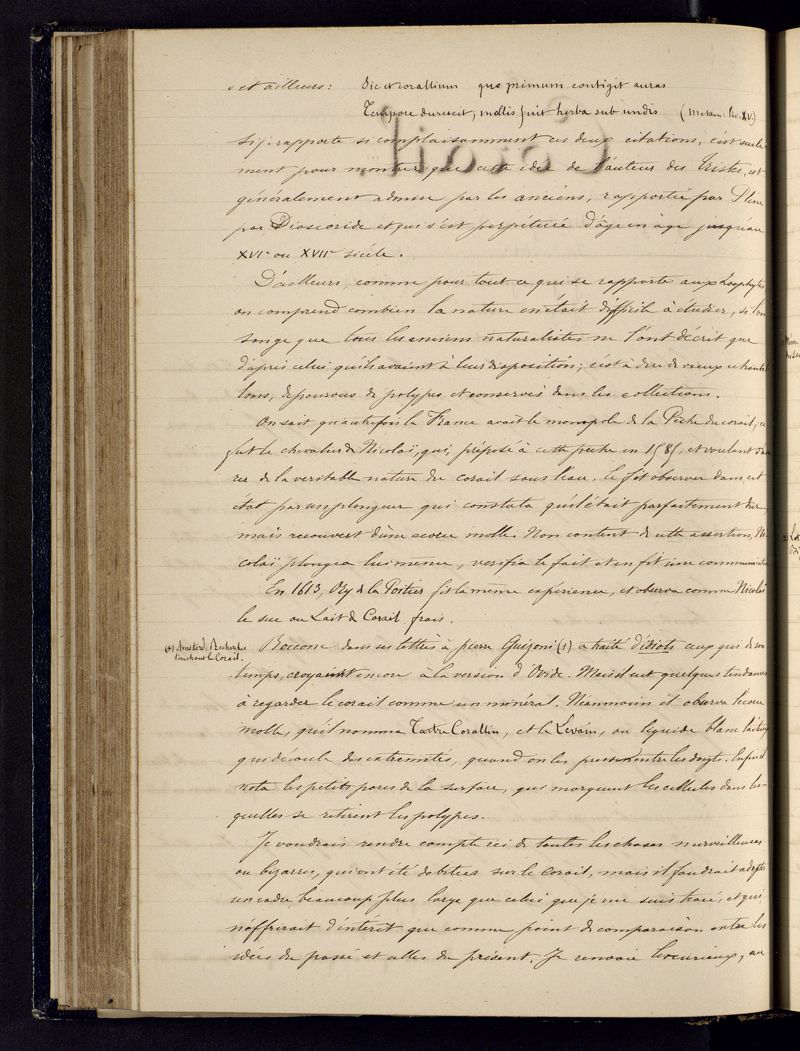 et ailleurs: Sic et corallium quo primum contigit auras
Tempore durescit; mollis fuit herba sub undis (Metam: liv. XV)
Si je rapporte si complaisamment ces deux citations, c'est seule-
ment pour montrer que cette idée de l'auteur des Tristes, est
généralement admise par les anciens, rapportée par Pline
par Dioscoride et qui s'est perpétuée d'âge en âge jusqu'au
XVIe ou XVIIe siècle.
D'ailleurs, comme pour tout ce qui se rapporte aux Zoophytes
on comprend combien la nature en était difficile à étudier, si l'on
songe que tous les anciens naturalistes ne l'ont décrit que
d'après celui qu'ils avaient à leur disposition; c'est à dire de vieux echantil-
lons, dépourvus de polypes et conservés dans les collections.
On sait qu'autrefois la France avait le monopole de la Pêche du corail; ce
fut le chevalier de Nicolaï, qui, préposé à cette peche en 1585, et voulant s'assu-
rer de la veritable nature du corail sous l'eau, le fit observer dans cet
état par un plongeur qui constata qu'il était parfaitement dur
mais recouvert d'une ecorce molle. Non content de cette assertion, Ni-
colaï plongea lui même, vérifia le fait et en fit une communication
En 1613, Ory de la Poitier fit la même expérience, et observa comme Nicolaï
le suc ou Lait de Corail frais.
(1) Amsterd. Recherches
touchant le Corail.
Boccone dans ses lettres à pierre Guizoni (1) a traité d'idiots ceux qui de son
temps, croyaient encore à la version d'Ovide. Mais il eut quelques tendances
à regarder le corail comme un minéral. Néanmoins il observa l'ecorce
molle, qu'il nomma Tartre Corallin, et le Levain, ou liquide blanc laiteux
qui découle des extremités, quand on les presse entre les doigts. Enfin il
nota les petits pores de la surface, qui marquent les cellules dans les-
quelles se retirent les polypes.
Je voudrais rendre compte ici de toutes les choses merveilleuses
ou bizarres, qui ont été débitées sur le corail, mais il faudrait adopter
un cadre beaucoup plus large que celui que je me suis tracé, et qui
n'offrirait d'intérêt que comme point de comparaison entre les
idées du passé et celles du présent. Je renvoie les curieux, au